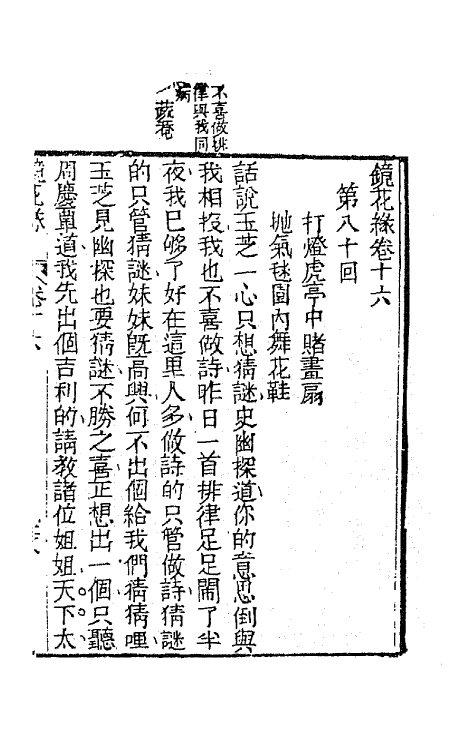 不喜做排
律與我同
病
蔬菴
鏡花緣卷十六
第八十回
打燈虎亭中賭畫扇
拋氣毬園內舞花鞋
話說玉芝一心只想猜謎史幽探道你的意思倒與
我相投我也不喜做詩昨日一首排律足足鬧了半
夜我已够了好在這里人多做詩的只管做詩猜謎
的只管猜謎妹妹既高興何不出個給我們猜猜哩
玉芝見幽探也要猜謎不勝之喜正想出一個只聽
周慶覃道我先出個吉利的請教諸位姐姐天下太
鏡花緣 卷十六